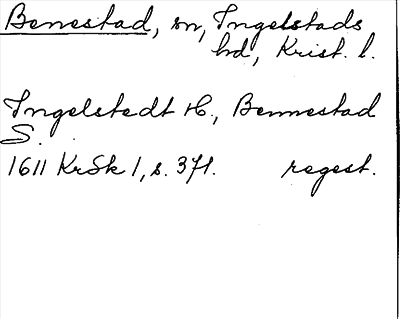 Benestad, sn, Ingelstads
hd, Krist. l.
Ingelstedt H., Bennestad
S.
1611 KrSk 1, s. 371. regest.